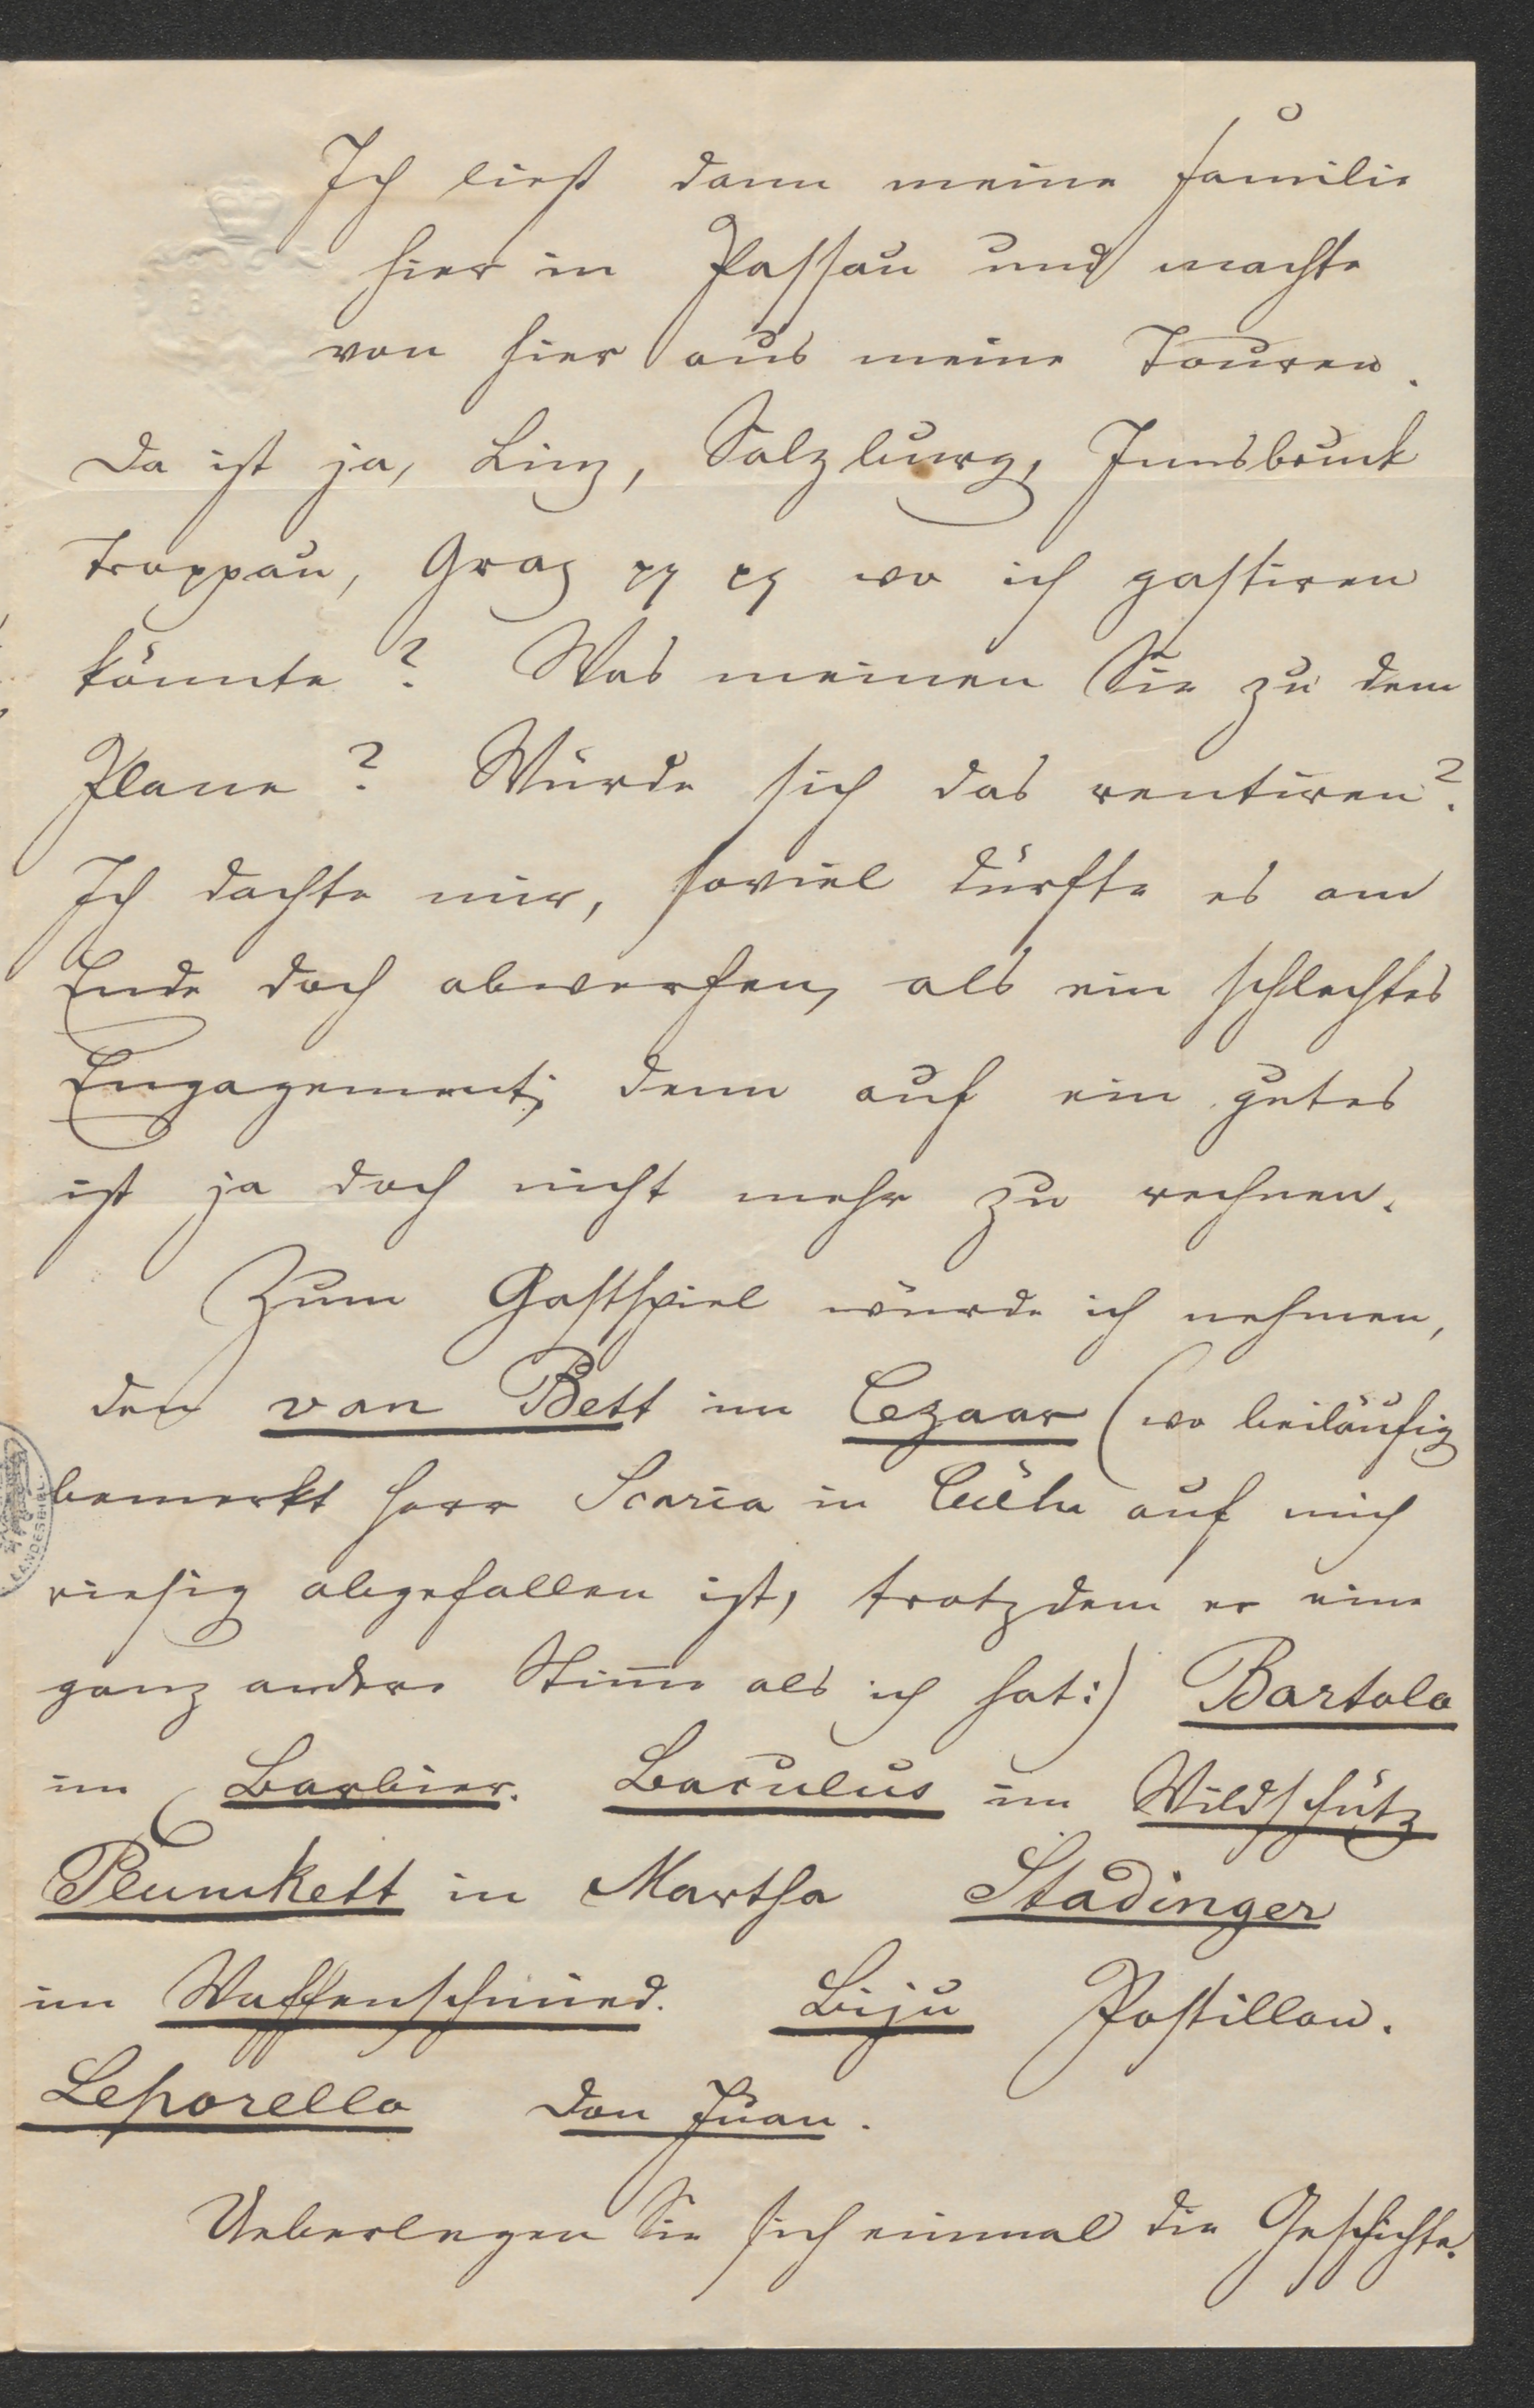 Ich ließ dann meine Familie
hier in Passau und machte
von hier aus meine Touren.
Da ist ja, Linz, Salzburg, Innsbruck
Troppau, Graz pp pp wo ich gastiren
könnte? Was meinen Sie zu dem
Plane? Würde sich das rentiren?
Ich dachte mir, soviel dürfte es am
Ende doch abwerfen, als ein schlechtes
Engagement; denn auf ein gutes
ist ja doch nicht mehr zu rechnen.
Zum Gastspiel würde ich nehmen,
den van Bett im Czaar (wo beiläufig
bemerkt Herr Scaria in Cöln auf mich
riesig abgefallen ist, trotzdem er eine
ganz andere Stim̄e als ich hat:) Bartolo
im Barbier. Baculus im Wildschütz
Plumkett in Martha Stadinger
im Waffenschmied. Biju Postillon.
Leporello Don Juan.
Ueberlegen Sie sich einmal die Geschichte.
LANDESBIBL.